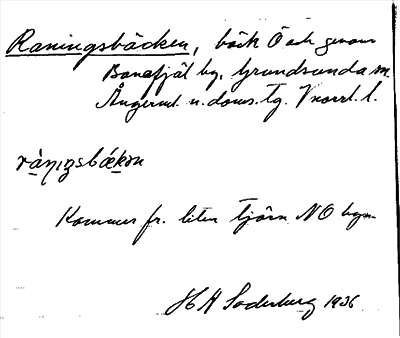 Raningsbäcken, bäck Ö och genom
Banafjäl by, Grundsunda sn.
Ångerml. n. doms. tg. Vnorrl. l.
råṇiŋsbäkən
Kommer fr. liten tjärn NO byn.
H A Söderberg 1936